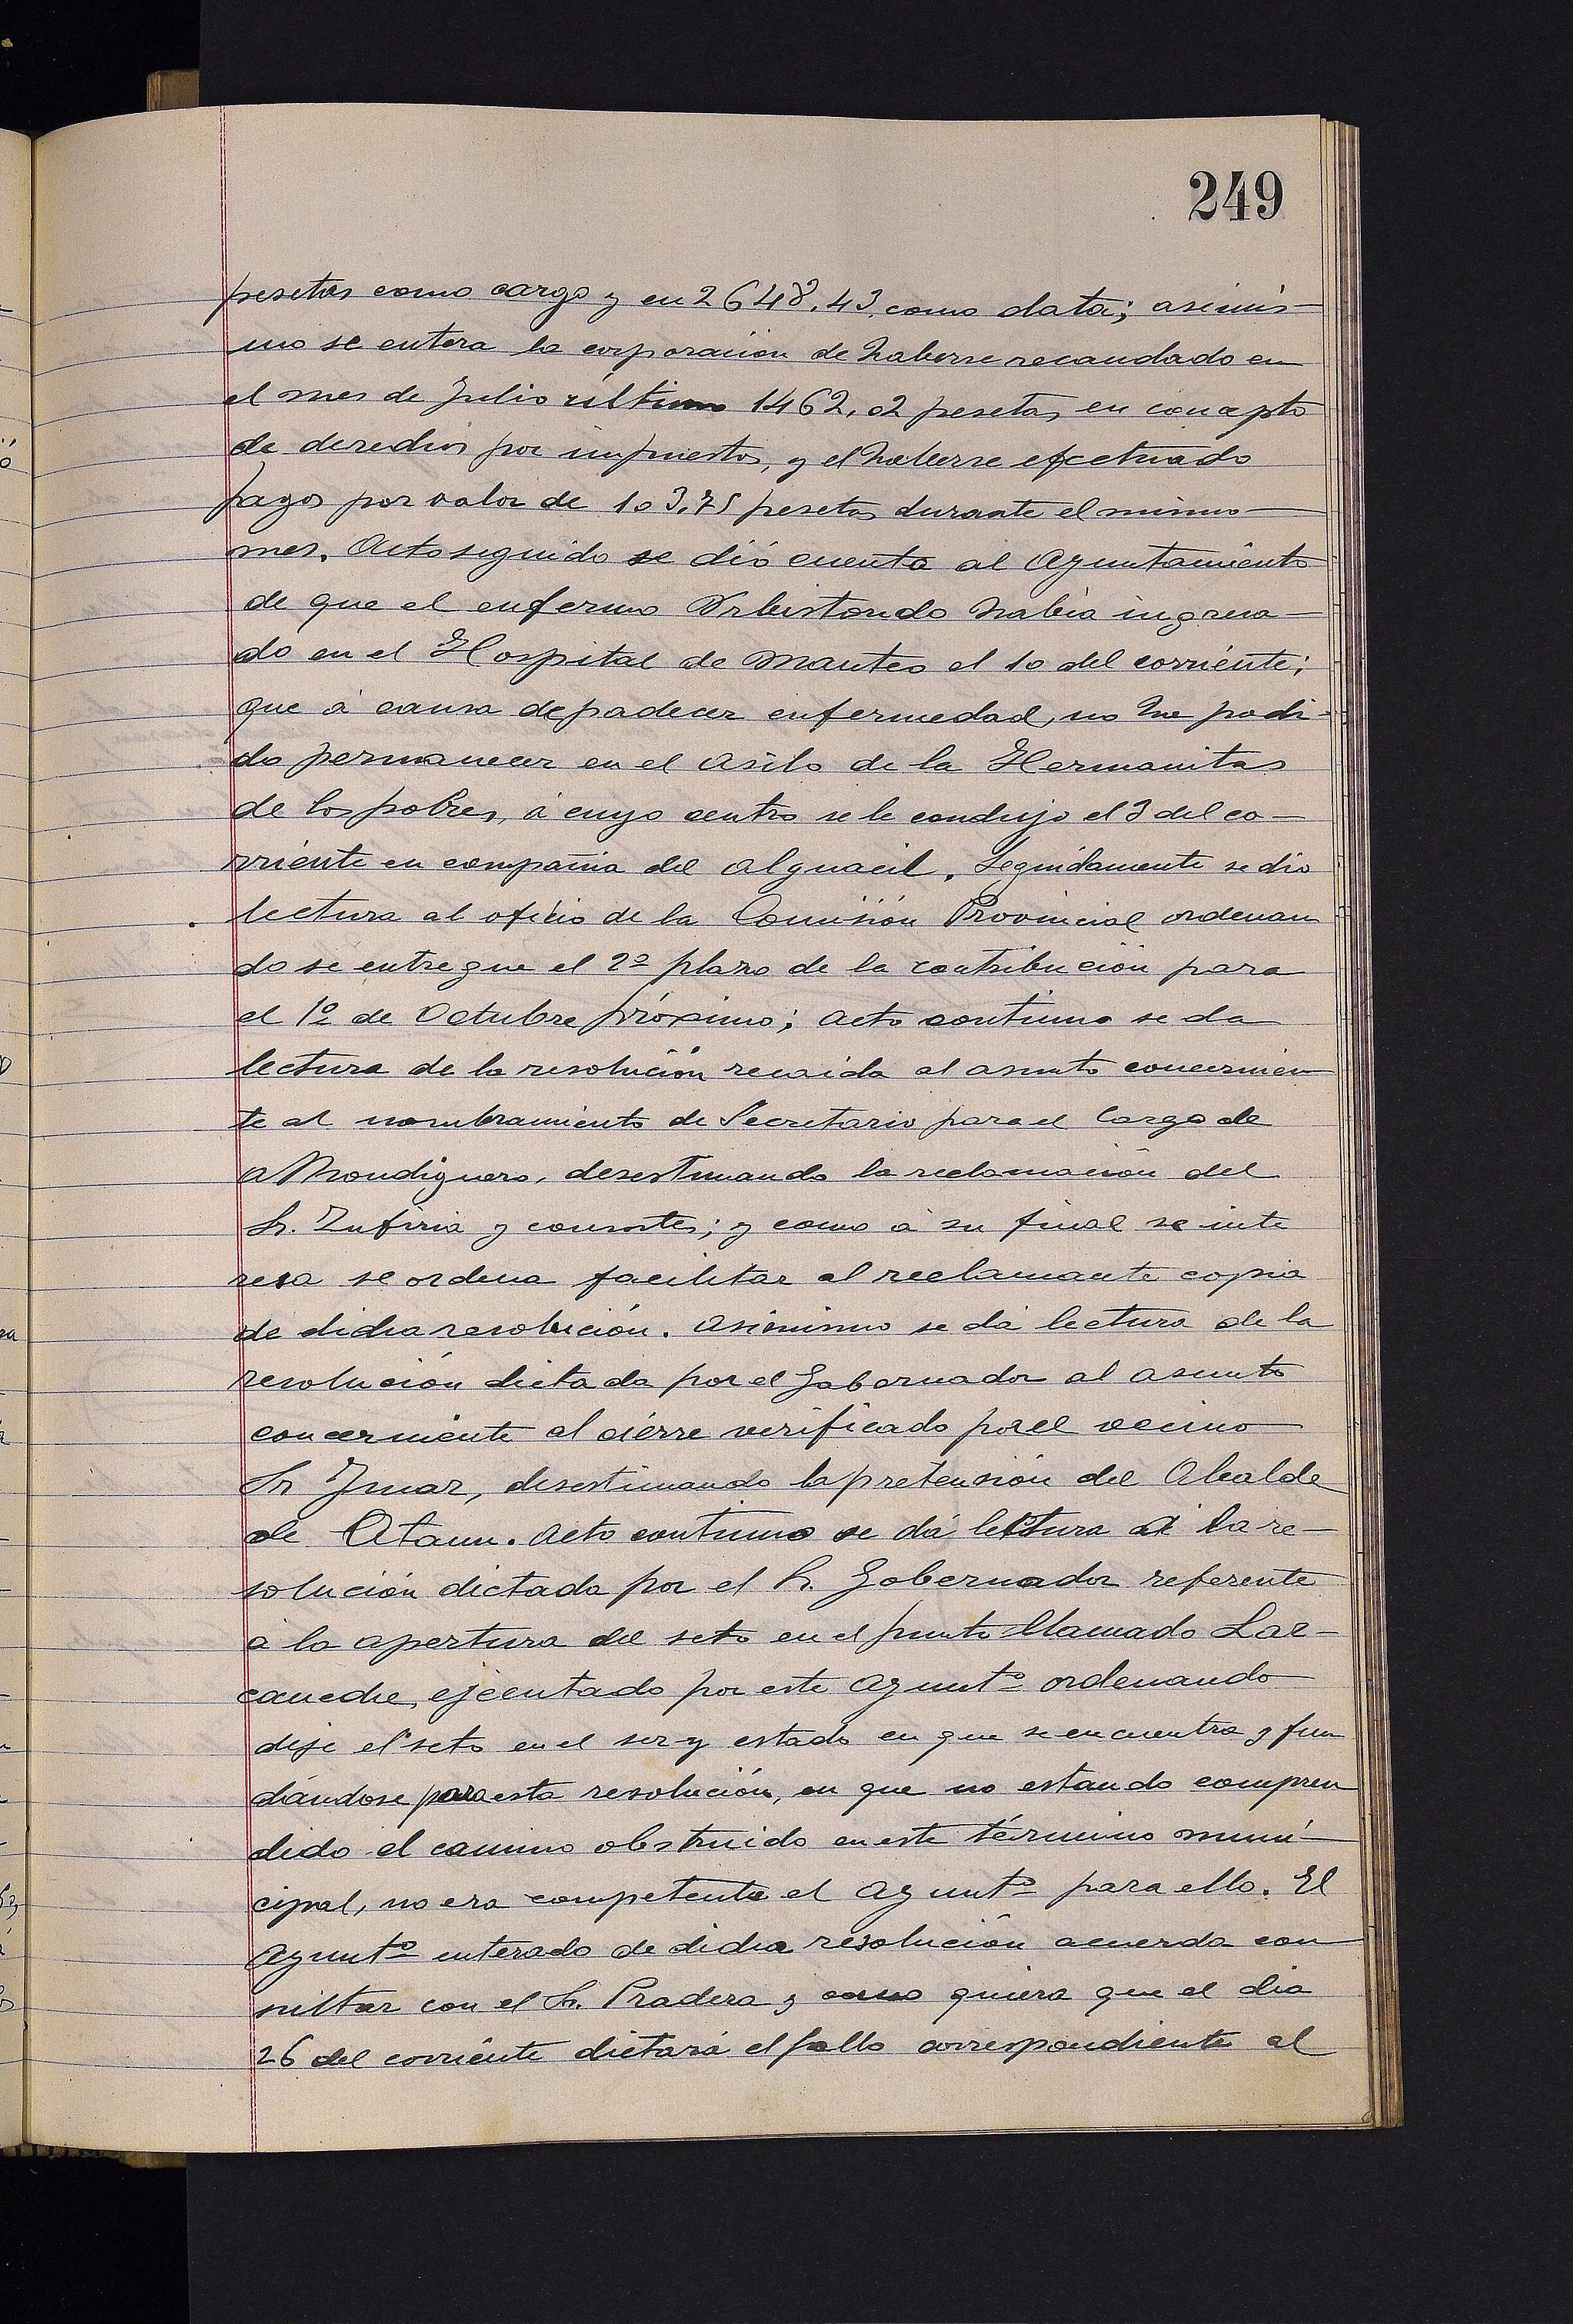 249
pesetas como cargo y en 2648.43. como data; asimis-
mo se entera la corporación de haberse recaudado en
el mes de Julio último 1462,02 pesetas en concepto
de derechos por impuestos, y el haberse efectuado
pagos por valor de 103,75 pesetas durante el mismo
mes. Acto seguido se dió cuenta al Ayuntamiento
de que el enfermo Urbistondo habia ingresa-
do en el Hospital de Manteo el 10 del corriente;
que á causa de padecer enfermedad, no ha podi-
do permanecer en el asilo de la Hermanitas
de los pobres, á cuyo centro se le condujo el 3 del co-
rriente en compañia del alguacil. Seguidamente se dio
lectura al oficio de la Comisión Provincial ordenan
do se entregue el 2º plazo de la contribución para
el 1º de Octubre próximo; acto continuo se da
lectura de la resolución recaida al asunto concernien
te al nombramiento de Secretario para el Cargo de
Mondiguero, desestimando la reclamación del
Sr. Zufiria y consortes; y como á su final se inte
resa se ordena facilitar al reclamante copia
de dicha resolución. Asimismo se dá lectura de la
resolución dictada por el Gobernador al asunto
concerniente al cierre verificado por el vecino
Sr Imaz, desestimando la pretensión del Alcalde
de Ataun. Acto continuo se dá lectura á la re-
solución dictada por el Sr. Gobernador referente
á la apertura del seto en el punto llamado Lar-
caneche, ejecutado por este Ayuntº ordenando
deje el seto en el ser y estado en que se encuentra y fun
dándose para esta resolución, en que no estando compren
dido el camino obstruido en este término muni-
cipal, no era competente el Ayuntº para ello. El
Ayuntº enterado de dicha resolución acuerda con
sultar con el Sr. Pradera y como quiera que el dia
26 del corriente dictará el fallo correspondiente al